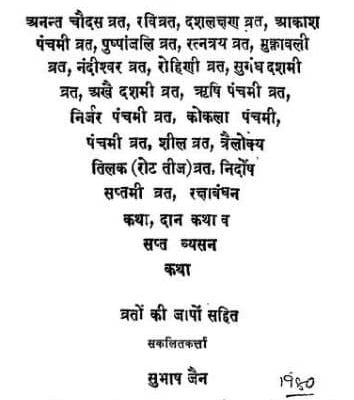 अनन्त चौदस व्रत, रविव्रत, दशलक्षण व्रत, आकाश
पंचमी व्रत, पुष्पांजलि व्रत, रत्नत्रय व्रत, मुक्तावली
व्रत, नंदीश्वर व्रत, रोहिणी व्रत, सुगंध दशमी
व्रत, अखै दशमी व्रत, ऋषि पंचमी व्रत,
निर्जर पंचमी व्रत, कोकला पंचमी,
पंचमी व्रत, शील व्रत, त्रैलोक्य
तिलक (रोट तीज)व्रत, निर्दोष
सप्तमी व्रत, रक्षाबंधन
कथा, दान कथा व
सप्त व्यसन
कथा
व्रतों की जापों सहित
सकलितकर्त्ता
सुभाष जैन